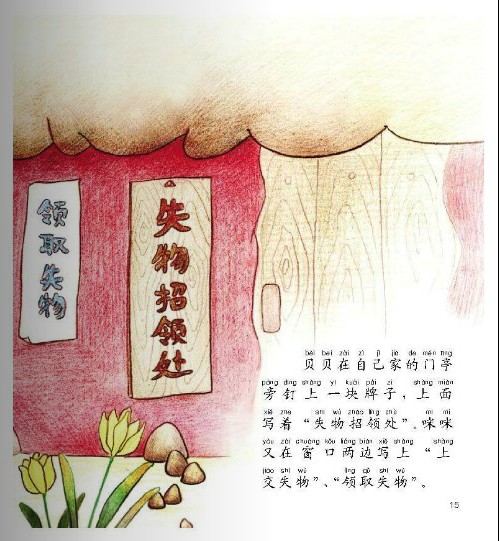 领取失物
失物招领处
bèi bei zài zì jǐ jiā de mén tíng
贝贝在自己家的门亭
páng dìng shàng yí kuài pái zi shàng miàn
旁钉上一块牌子，上面
xiě zhe shī wù zhāo lǐng chù mī mi
写着“失物招领处”。咪咪
yòu zài chuāng kǒu liǎng biān xiě shàng shàng
又在窗口两边写上“上
jiāo shī wù lǐng qǔ shī wù
交失物”、“领取失物”。
15